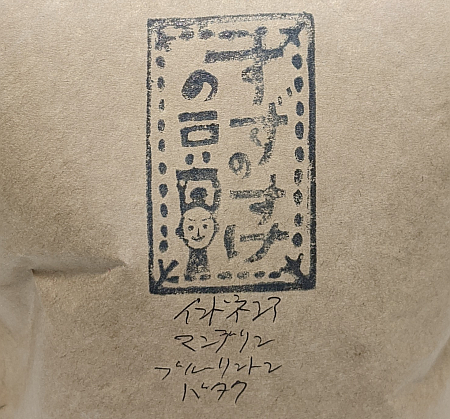 すずのすけ
の豆
インドネシア
マンデリン
ブルーリントン
バタク